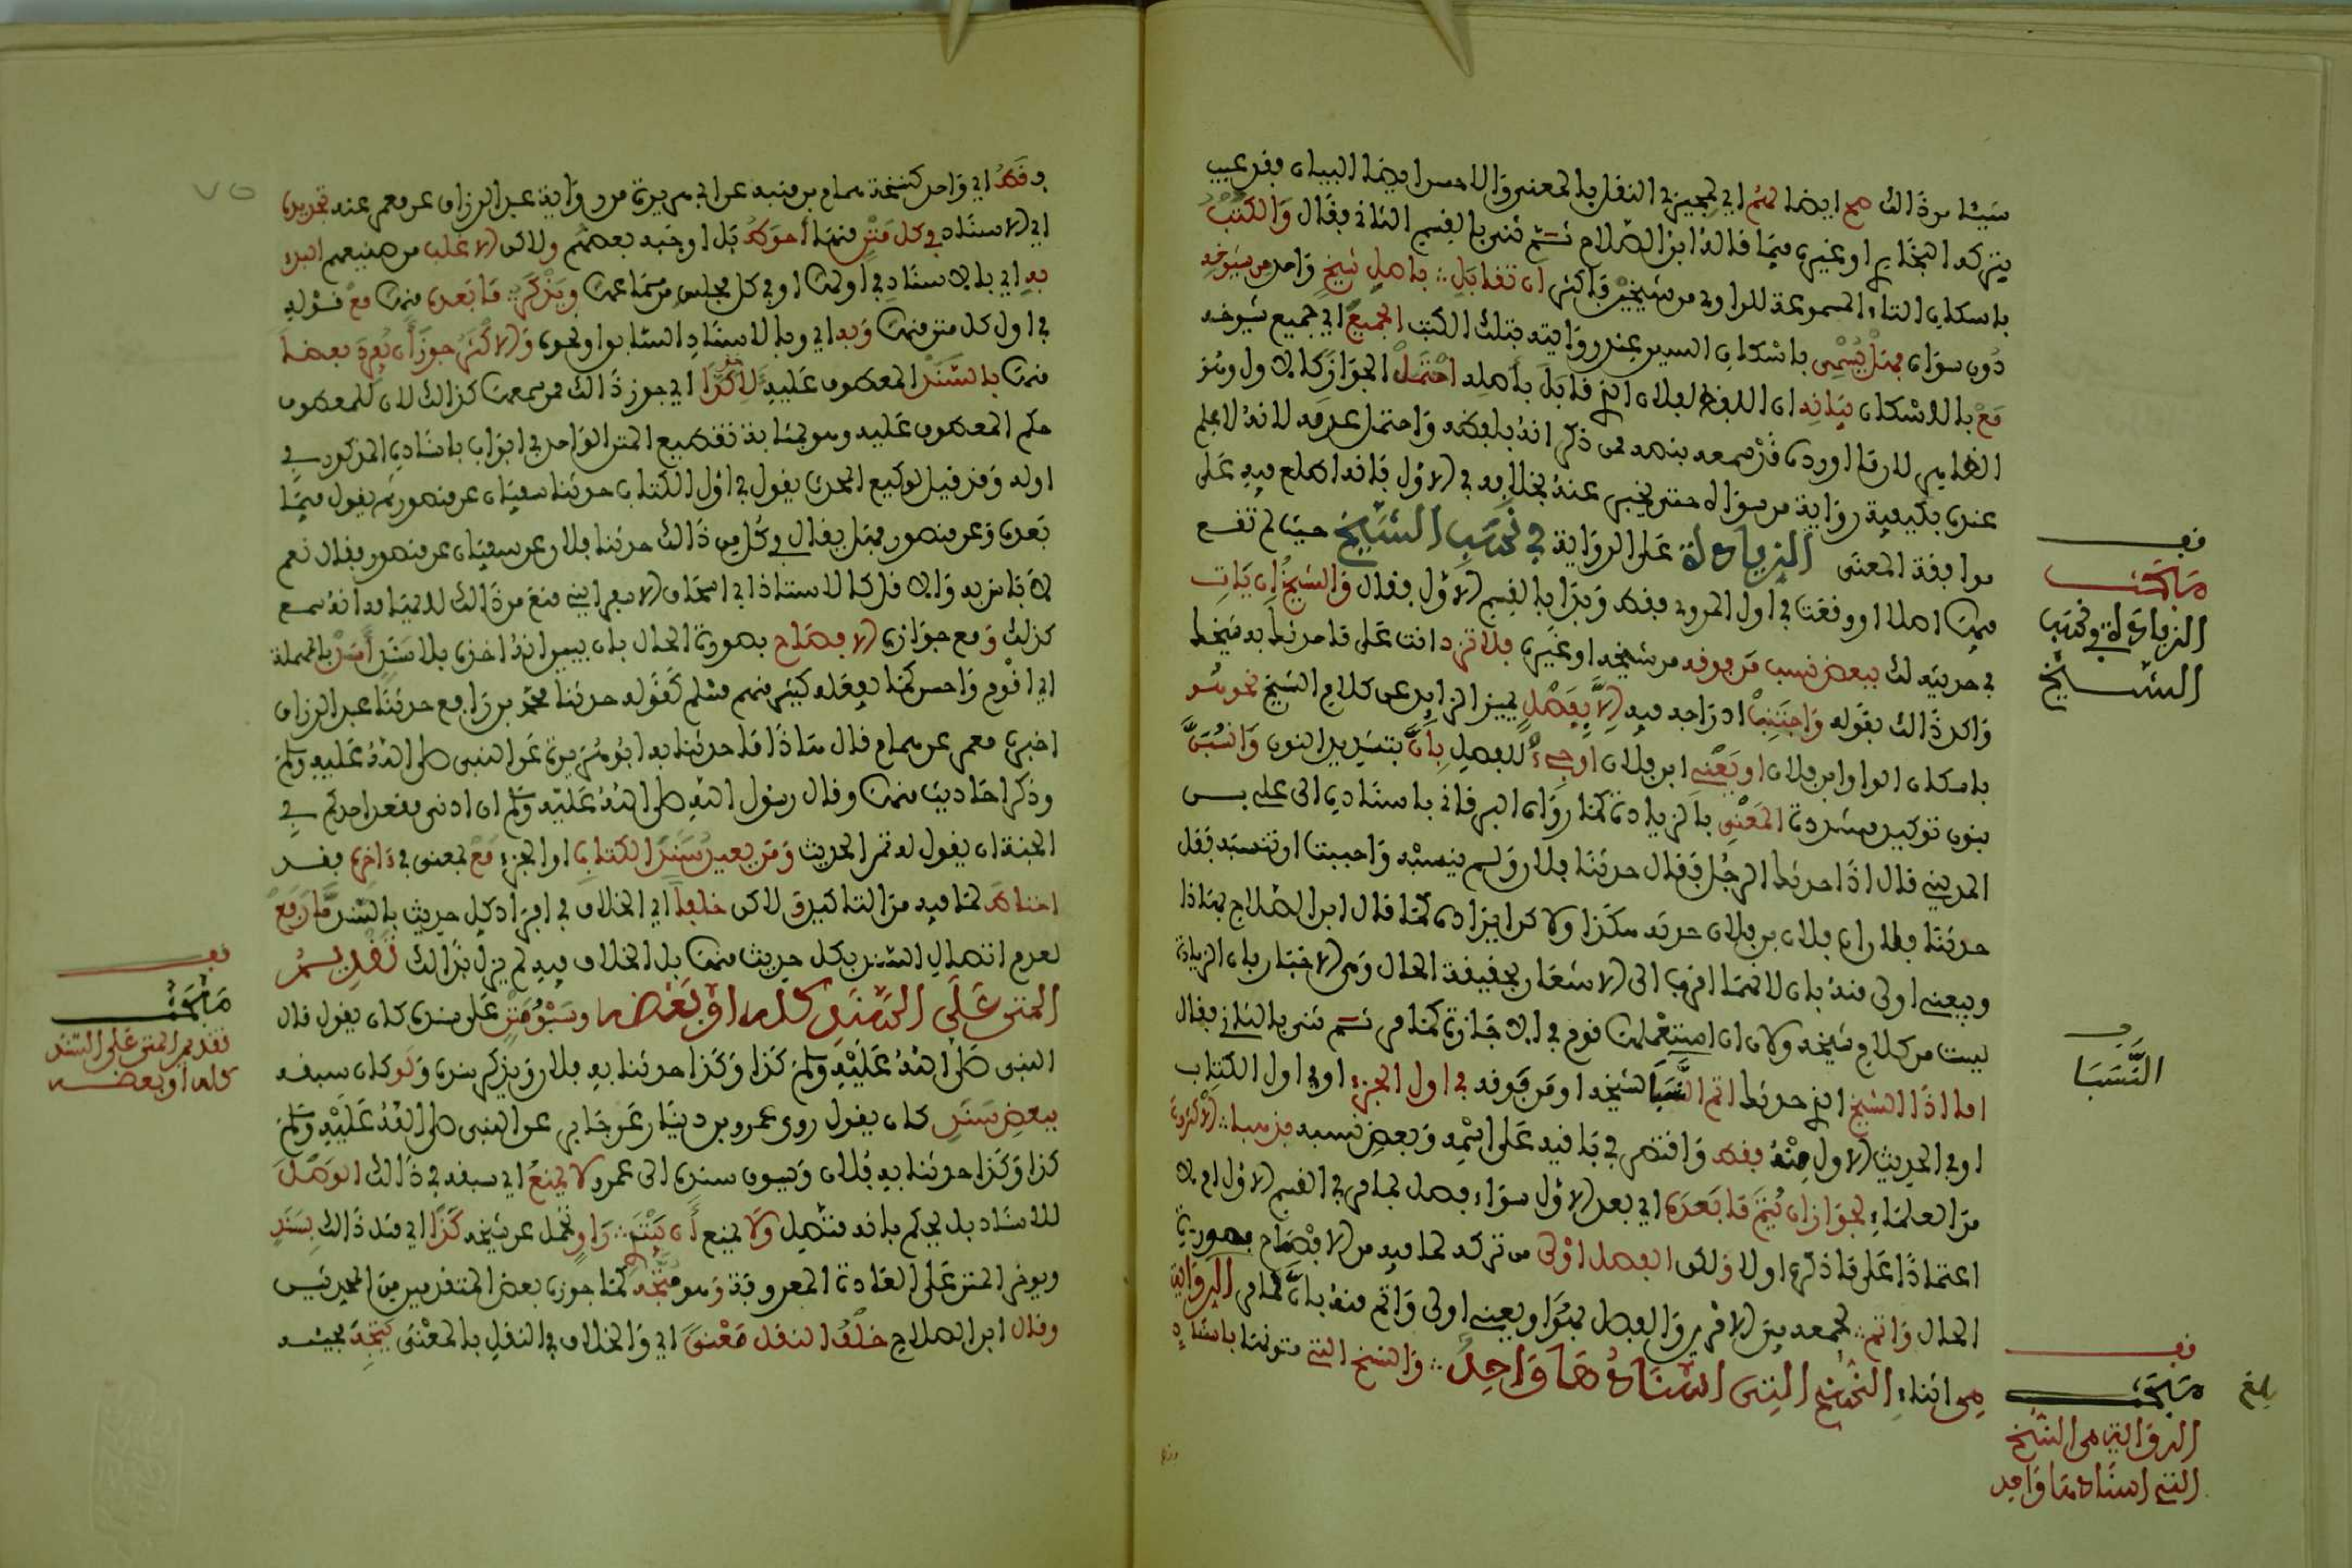 شيئا من ذالك صح ايضا لهم اي لمجيزي النقل بالمعنى والاحسن ايضا البيان فقد عيب
بتركه البخاري او غيره فيما قاله ابن الصلاح ثم ثنى بالقسم الثاني فقال والكتب
باسكان التاء المسموعة للراوي من شيخين فاكثر ان تقابل باصل شيخ واحد من شيوخه
دون سواه فهل يسمي باسكان السين عند روايته بتلك الكتب الجميع اي جميع شيوخه
مع بالاسكان بيانه ان اللفظ لفلان الذي قابل باصله احتمل الجواز كالاول وهو
الظاهر لان ما اورده قد سمعه بنصه ممن ذكر انه بلفظه واحتمل عدمه لانه لا علم
عنده بكيفية رواية من سواه حتى يخبر عنه بخلافه في الاول فانه اطلع فيه على
موافقة المعنى الزيادة على الرواية في نسب الشيخ حيث لم تقع
فيها اصلا او وقعت في اول المروي فقط وبدا بالقسم الاول فقال والشيخ ان يات
في حديثه لك ببعض نسب من فوقه من شيخه او غيره فلا تزد انت على ما حدثك به شيخك
واكد ذالك بقوله واجتنب ادراجه فيه الا بفصل يميز الزايد عن كلام الشيخ نحو هو
باسكان الواو ابن فلان او يعني ابن فلان او جئ للفصل بان بتشديد النون وانسبن
بنون توكيد مشددة المعني بالزيادة كما رواه البرقاني باسناده الى علي بن
المديني قال اذا حدثك الرجل فقال حدثنا فلان ولم ينسبه واحببت ان تنسبه فقل
حدثنا فلان ان فلان بن فلان حدثه هكذا ولاكن ايراده كما قال ابن الصلاح بهاذا
وبيعني اولى منه بان لانهما اقرب الى الاشعار بحقيقة الحال ومن الاخبار بان الزيادة
ليست من كلام شيخه ولان ان استعملها قوم في الاجازة كما مر ثم ثنى بالثاني فقال
اما اذا الشيخ الذي حدثك اتم النسبا لشيخه او من فوقه في اول الجزء او في اول الكتاب
او في الحديث الاول منه فقط واقتصر في باقيه على اسمه وبعض نسبه فذهبا الاكثرون
من العلماء لجواز ان يتم ما بعده اي بعد الاول سواء فصل بما مر في القسم الاول ام لا
اعتمادا على ما ذكره اولا ولكن الفصل اولى من تركه لما فيه من الافصاح بصورة
الحال واتم لجمعه بين الامرين والفصل بهو او يعني اولى واتم منه بان لما مر الرواية
من اثناء النسخ التي اسنادها واحد والنسخ التي متونها باسناد
قف
مبحث
الزيادة في نسب
الشيخ
قف
النسبا
قف
مبحث
الرواية من النسخ
التي اسنادها واحد
بلغ
٧٥
فقط اي واحد كنسخة همام بن منبه عن ابي هريرة من رواية عبد الرزاق عن معمر عنه تجديد
اي الاسناد في كل متن منها احوط بل اوجبه بعضهم ولاكن الاغلب من صنيعهم البدء
به اي بالاسناد في اولها او في كل مجلس من سماعها ويذكر ما بعده منها مع قوله
في اول كل متن منها وبه اي وبالاسناد السابق او نحوه والاكثر جوز ان يفرد بعضا
منها بالسند المعطوف عليه لاكذا اي جوز ذالك من سمعها كذالك لان للمعطوف
حكم المعطوف عليه وهو بمثابة تقطيع المتن الواحد في ابواب باسناده المذكور في
اوله وقد قيل لوكيع المحدث يقول في اول الكتاب حدثنا سفيان عن منصور ثم يقول فيما
بعده وعن منصور فهل يقال في كل من ذالك حدثنا فلان عن سفيان عن منصور فقال نعم
لا باس به والا فان كالاستاذ ابي اسحاق الاسفرايني منع من ذالك للايهام انه سمع
كذلك ومع جوازه الافصاح بصورة الحال بان يبين انه اخذه بلا سند اسد بالمهملة
اي اقوم واحسن كما يفعله كثير منهم مسلم كقوله حدثنا محمد بن رافع حدثنا عبد الرزاق
اخبرنا معمر عن همام قال هاذا ما حدثنا به ابو هريرة عن النبي صلى الله عليه وسلم
وذكر احاديث منها وقال رسول الله صلى الله عليه وسلم ان ادنى مقعد احدكم في
الجنة ان يقول له تمن الحديث ومن يعيد سند الكتاب او الجزء مع لمعنى في ءاخره فقد
احتاط لما فيه من التاكيد ولاكن خلفا اي الخلاف في افراد كل حديث بالسند ما رفع
لعدم اتصال السند بكل حديث منها بل الخلاف فيه لم يزل بذالك تقديم
المتن على السند كله او بعضه وسبق متن على سند كان يقول قال
النبي صلى الله عليه وسلم كذا وكذا حدثنا به فلان ويذكر سنده ولو كان سبقه
ببعض سند كان يقول روى عمرو بن دينار عن جابر عن النبي صلى الله عليه وسلم
كذا وكذا حدثنا به فلان ويسوق سنده الى عمرو لا يمنع اي سبقه في ذالك الوصل
للاسناد بل يحكم بانه متصل ولا يمنع ان يبتدئ راو تحمل عن شيخه كذا اي مثل ذالك بسند
ويوخر المتن على العادة المعروفة وهو متجه كما جوزه بعض المتقدمين من المحدثين
وقال ابن الصلاح خلف النقل معنى اي والخلاف في النقل بالمعنى يتجه مجيئه
قف
مبحث
تقديم المتن على السند
كله او بعضه